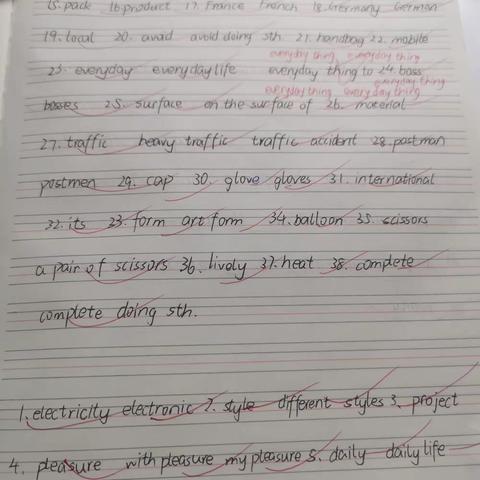 15. pack 16. product 17. France French 18. Germany German
19. local 20. avoid avoid doing sth. 21. handbag 22. mobile
everyday thing everyday thing
23. everyday everyday life everyday thing to 24. boss
everyday thing
everyday thing everyday thing
bosses 25. surface on the surface of 26. material
27. traffic heavy traffic traffic accident 28. postman
postmen 29. cap 30. glove gloves 31. international
32. its 23. form art form 34. balloon 35. scissors
a pair of scissors 36. lively 37. heat 38. complete
complete doing sth.
1. electricity electronic 2. style different styles 3. project
4. pleasure with pleasure my pleasure 5. daily daily life